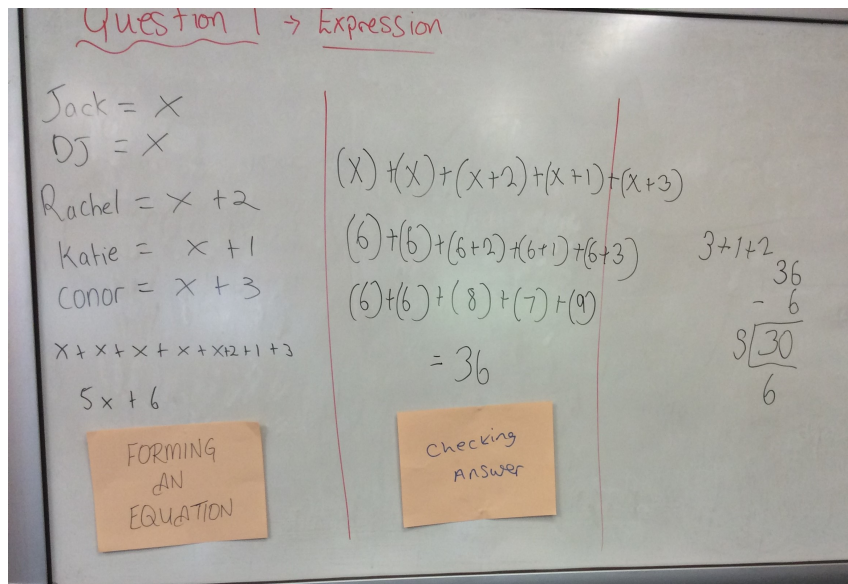 Question 1 → Expression
Jack = x
DJ = x
Rachel = x + 2
Katie = x + 1
Conor = x + 3
x + x + x + x + x+2 + 1 + 3
5x + 6
FORMING
AN
EQUATION
(x) + (x) + (x+2) + (x+1) + (x+3)
(6) + (6) + (6+2) + (6+1) + (6+3)
(6) + (6) + (8) + (7) + (9)
= 36
Checking
Answer
3+1+2
36
- 6
5 30
6